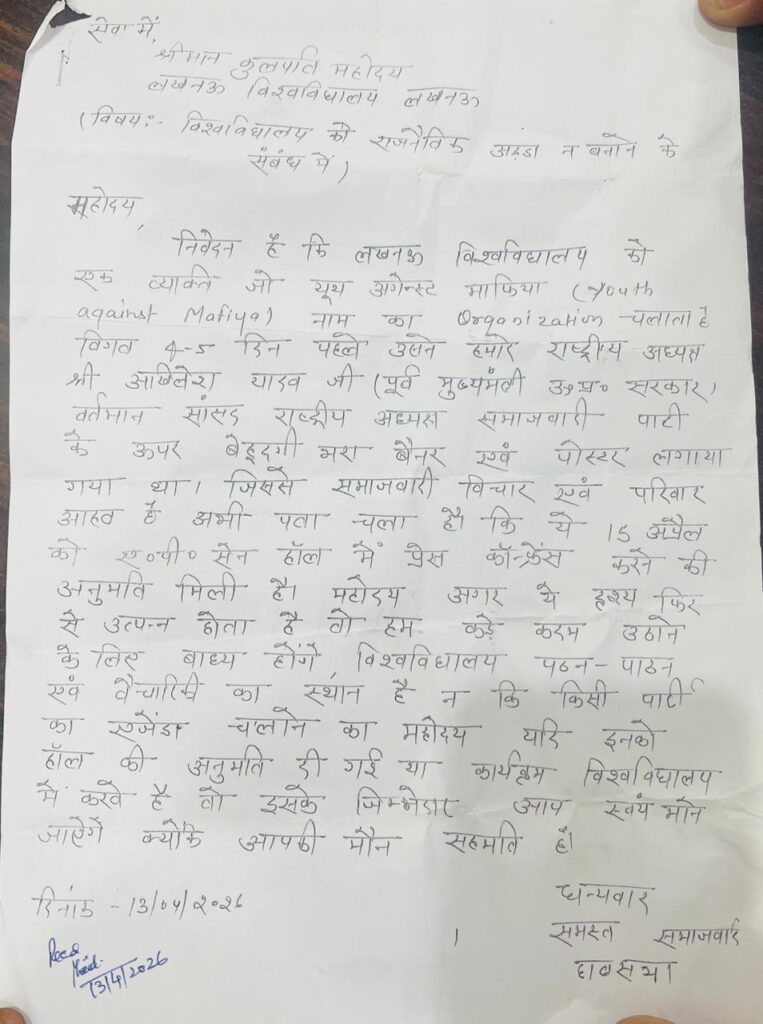 सेवा में,
श्रीमान कुलपति महोदय
लखनऊ विश्वविद्यालय लखनऊ
(विषय:- विश्वविद्यालय को राजनैतिक अड्डा न बनाने के
संबंध में)
महोदय,
निवेदन है कि लखनऊ विश्वविद्यालय को
एक व्यक्ति जो यूथ अगेन्स्ट माफिया (Youth
against Mafiya) नाम का Organization चलाता है
विगत 4-5 दिन पहले उसने हमारे राष्ट्रीय अध्यक्ष
श्री अखिलेश यादव जी (पूर्व मुख्यमंत्री उ०प्र० सरकार)
वर्तमान सांसद राष्ट्रीय अध्यक्ष समाजवादी पार्टी
के ऊपर बेहूदगी भरा बैनर एवं पोस्टर लगाया
गया था। जिससे समाजवादी विचार एवं परिवार
आहत है अभी पता चला है। कि ये 15 अप्रैल
को ए०पी० सेन हॉल में प्रेस कॉन्फ्रेंस करने की
अनुमति मिली है। महोदय अगर ये दृश्य फिर
से उत्पन्न होता है तो हम कड़े कदम उठाने
के लिए बाध्य होंगे, विश्वविद्यालय पठन-पाठन
एवं वैचारिकी का स्थान है न कि किसी पार्टी
का एजेंडा चलाने का महोदय यदि इनको
हॉल की अनुमति दी गई या कार्यक्रम विश्वविद्यालय
में करते है तो इसके जिम्मेदार आप स्वयं माने
जाएंगे क्योंकि आपकी मौन सहमति है।
दिनांक - 13/04/2026
धन्यवाद
समस्त समाजवादी
छात्रसभा
Recd
13/4/2026